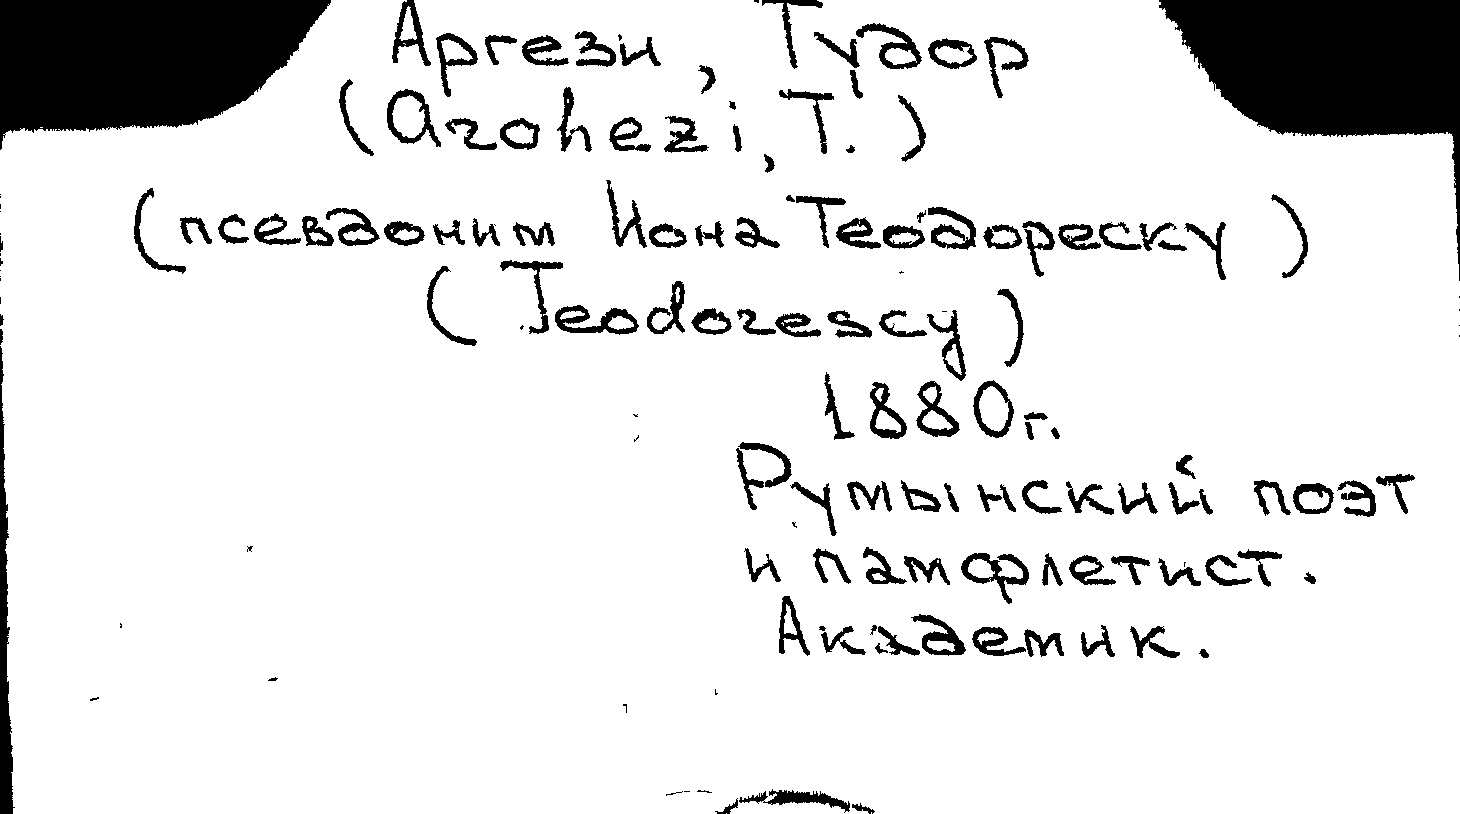 Аргези, Тудор
(Arohezi, T.)
(псевдоним Иона Теодореску)
(Teodorescy)
1880г.
Румынский поэт
и памфлетист.
Академик.